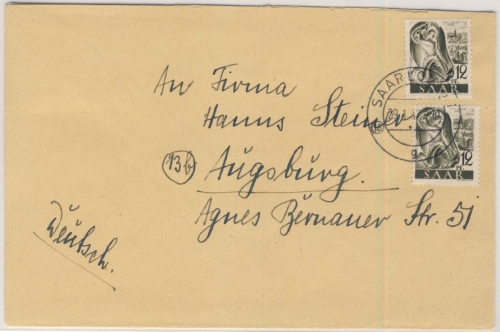 An Firma
Hanns Steiner
(13b) Augsburg.
Agnes Bernauer Str. 51
Deutsch.
12
SAAR
12
SAAR
SAARLO